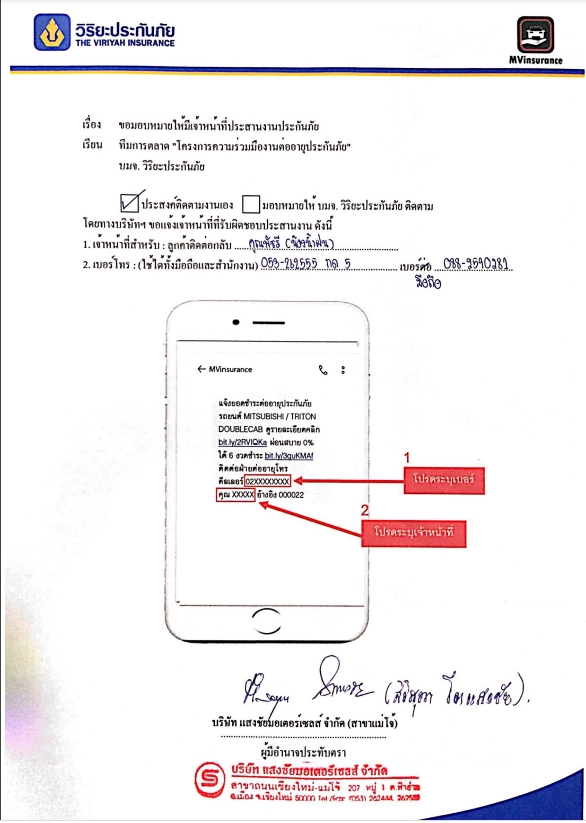 วิริยะประกันภัย
THE VIRIYAH INSURANCE
MVinsurance
เรื่อง ขอมอบหมายให้มีเจ้าหน้าที่ประสานงานประกันภัย
เรียน ทีมการตลาด "โครงการความร่วมมืองานต่ออายุประกันภัย"
บมจ. วิริยะประกันภัย
ประสงค์ติดตามงานเอง มอบหมายให้ บมจ. วิริยะประกันภัย ติดตาม
โดยทางบริษัทฯ ขอแจ้งเจ้าหน้าที่ที่รับผิดชอบประสานงาน ดังนี้
1. เจ้าหน้าที่สำหรับ : ลูกค้าติดต่อกลับ
2. เบอร์โทร : (ใช้ได้ทั้งมือถือและสำนักงาน) 053-262555 กด 5 เบอร์ต่อ 088-2590282
มือถือ
← MVinsurance
แจ้งยอดชำระต่ออายุประกันภัย
รถยนต์ MITSUBISHI / TRITON
DOUBLECAB ดูรายละเอียดคลิก
bit.ly/2RVIQKa ผ่อนสบาย 0%
ได้ 6 งวดชำระ bit.ly/3guKMAf
ติดต่อฝ่ายต่ออายุโทร
ดีลเลอร์ 02XXXXXXXX
คุณ XXXXX อ้างอิง 000022
1
โปรดระบุเบอร์
2
โปรดระบุเจ้าหน้าที่
บริษัท แสงชัยมอเตอร์เซลส์ จำกัด (สาขาแม่โจ้)
ผู้มีอำนาจประทับตรา
บริษัท แสงชัยมอเตอร์เซลส์ จำกัด
สาขาถนนเชียงใหม่-แม่โจ้ 207 หมู่ 1 ต.ฟ้าฮ่าม
อ.เมือง จ.เชียงใหม่ 50000 Tel./Fax: (053) 262444,